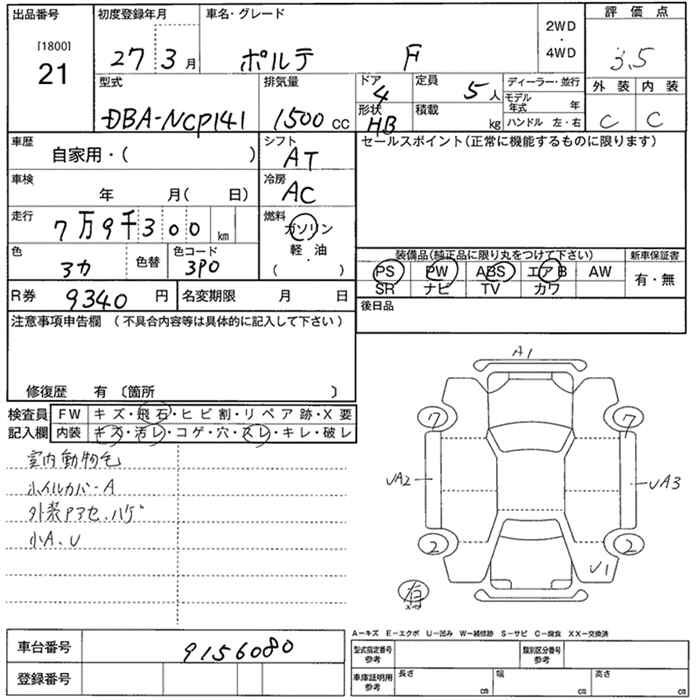 出品番号 初度登録年月 車名・グレード 評 価 点
[1800]
21
27 3 月 ポルテ F 2WD・4WD 3.5
型式 排気量 ドア 定員 ディーラー・並行 外 装 内 装
DBA-NCP141 1500 cc 4 5 人 モデル年式 年 C C
形状 積載 kg ハンドル 左・右
HB
車歴 シフト セールスポイント(正常に機能するものに限ります)
自家用・( ) AT
車検 冷房
年 月( 日) AC
走行 燃料
7万9千300 km ガソリン
軽・油
・
( )
色 色替 色コード 装備品(純正品に限り丸をつけて下さい) 新車保証書
3カ 3P0 PS PW ABS エアB AW 有・無
SR ナビ TV カワ
R券 9340 円 名変期限 月 日 後日品
注意事項申告欄 (不具合内容等は具体的に記入して下さい)
修復歴 有 〔箇所 〕
検査員 FW キズ・飛石・ヒビ割・リペア跡・X要
記入欄 内装 キズ・汚レ・コゲ・穴・スレ・キレ・破レ
室内動物毛
ホイルカバーA
外装アクセ、ハゲ
小A、U
A1
7 7
UA2 UA3
2 2
U1
A−キズ E−エクボ U−凹み W−補修跡 S−サビ C−腐食 XX−交換済
車台番号 9156080 型式指定番号 参考 類別区分番号 参考
登録番号 車庫証明用 参考 長さ cm 幅 cm 高さ cm